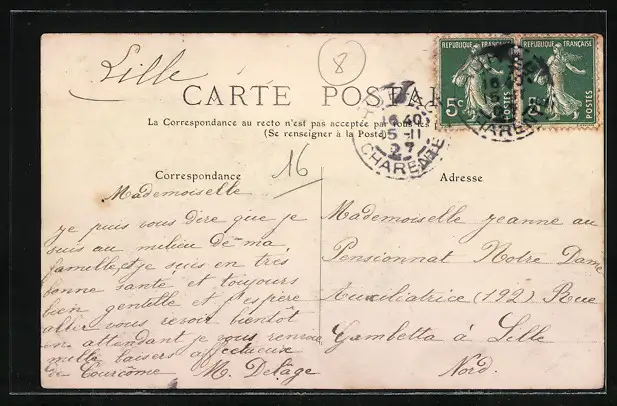 Lille
8
REPUBLIQUE FRANÇAISE
5c POSTES
REPUBLIQUE FRANÇAISE
5c POSTES
CARTE POSTALE
La Correspondance au recto n'est pas acceptée par tous les
(Se renseigner à la Poste)
16 40
5-11
07
CHARENTE
CHARENTE
16
Correspondance
Mademoiselle
je puis vous dire que je
suis au milieu de ma
famille et je suis en très
bonne santé et toujours
bien gentille et j'espère
aller vous revoir bientôt
en attendant je vous renvoie
mille baisers affectueux
de Courcôme M. Delâge
Adresse
Mademoiselle Jeanne au
Pensionnat Notre Dame
Auxiliatrice (192) Rue
Gambetta à Lille
Nord.